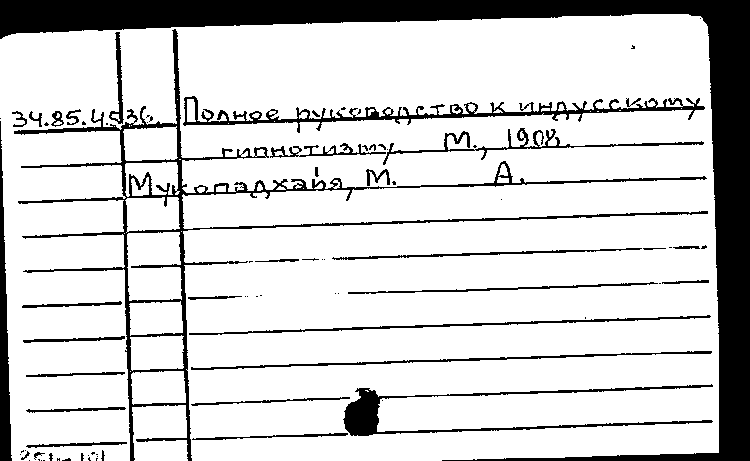 34.85.4536. Полное руководство к индусскому
гипнотизму М., 1908.
Мукопадхайя, М. А.